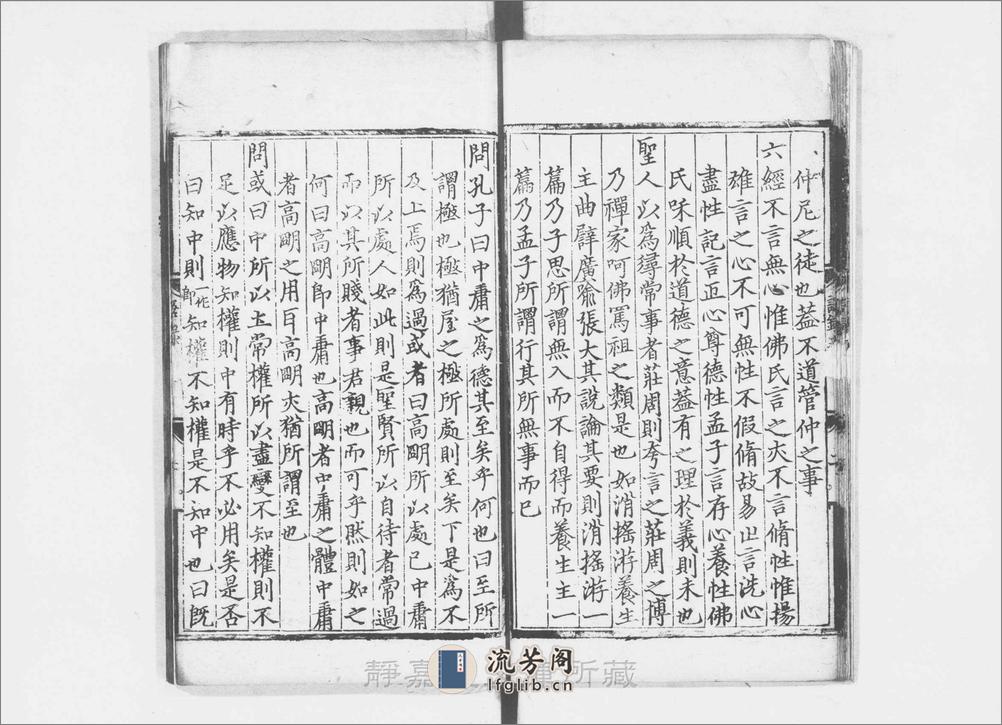 仲尼之徒也蓋不道管仲之事
六經不言無心惟佛氏言之亦不言脩性惟揚
雄言之心不可無性不假脩故易止言洗心
盡性記言正心尊德性孟子言存心養性佛
氏和順於道德之意蓋有之理於義則未也
聖人以為尋常事者莊周則夸言之莊周之博
乃禪家呵佛罵祖之類是也如消搖游養生
主曲譬廣喻張大其說論其要則消搖游一
篇乃子思所謂無入而不自得而養生主一
篇乃孟子所謂行其所無事而已
問孔子曰中庸之為德其至矣乎何也曰至所
謂極也極猶屋之極所處則至矣下是為不
及上焉則為過或者曰高明所以處己中庸
所以處人如此則是聖賢所以自待者常過
而以其所賤者事君親也而可乎然則如之
何曰高明即中庸也高明者中庸之體中庸
者高明之用耳高明亦猶所謂至也
問或曰中所以立常權所以盡變不知權則不
足以應物知權則中有時乎不必用矣是否
曰知中則一作即知權不知權是不知中也曰既
語錄
二
流芳阁
lfglib.cn
靜嘉
所藏